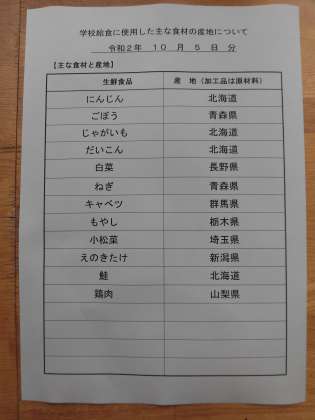 学校給食に使用した主な食材の産地について
令和２年 １０ 月 ５ 日 分
【主な食材と産地】
生鮮食品 産 地（加工品は原材料）
にんじん 北海道
ごぼう 青森県
じゃがいも 北海道
だいこん 北海道
白菜 長野県
ねぎ 青森県
キャベツ 群馬県
もやし 栃木県
小松菜 埼玉県
えのきたけ 新潟県
鮭 北海道
鶏肉 山梨県